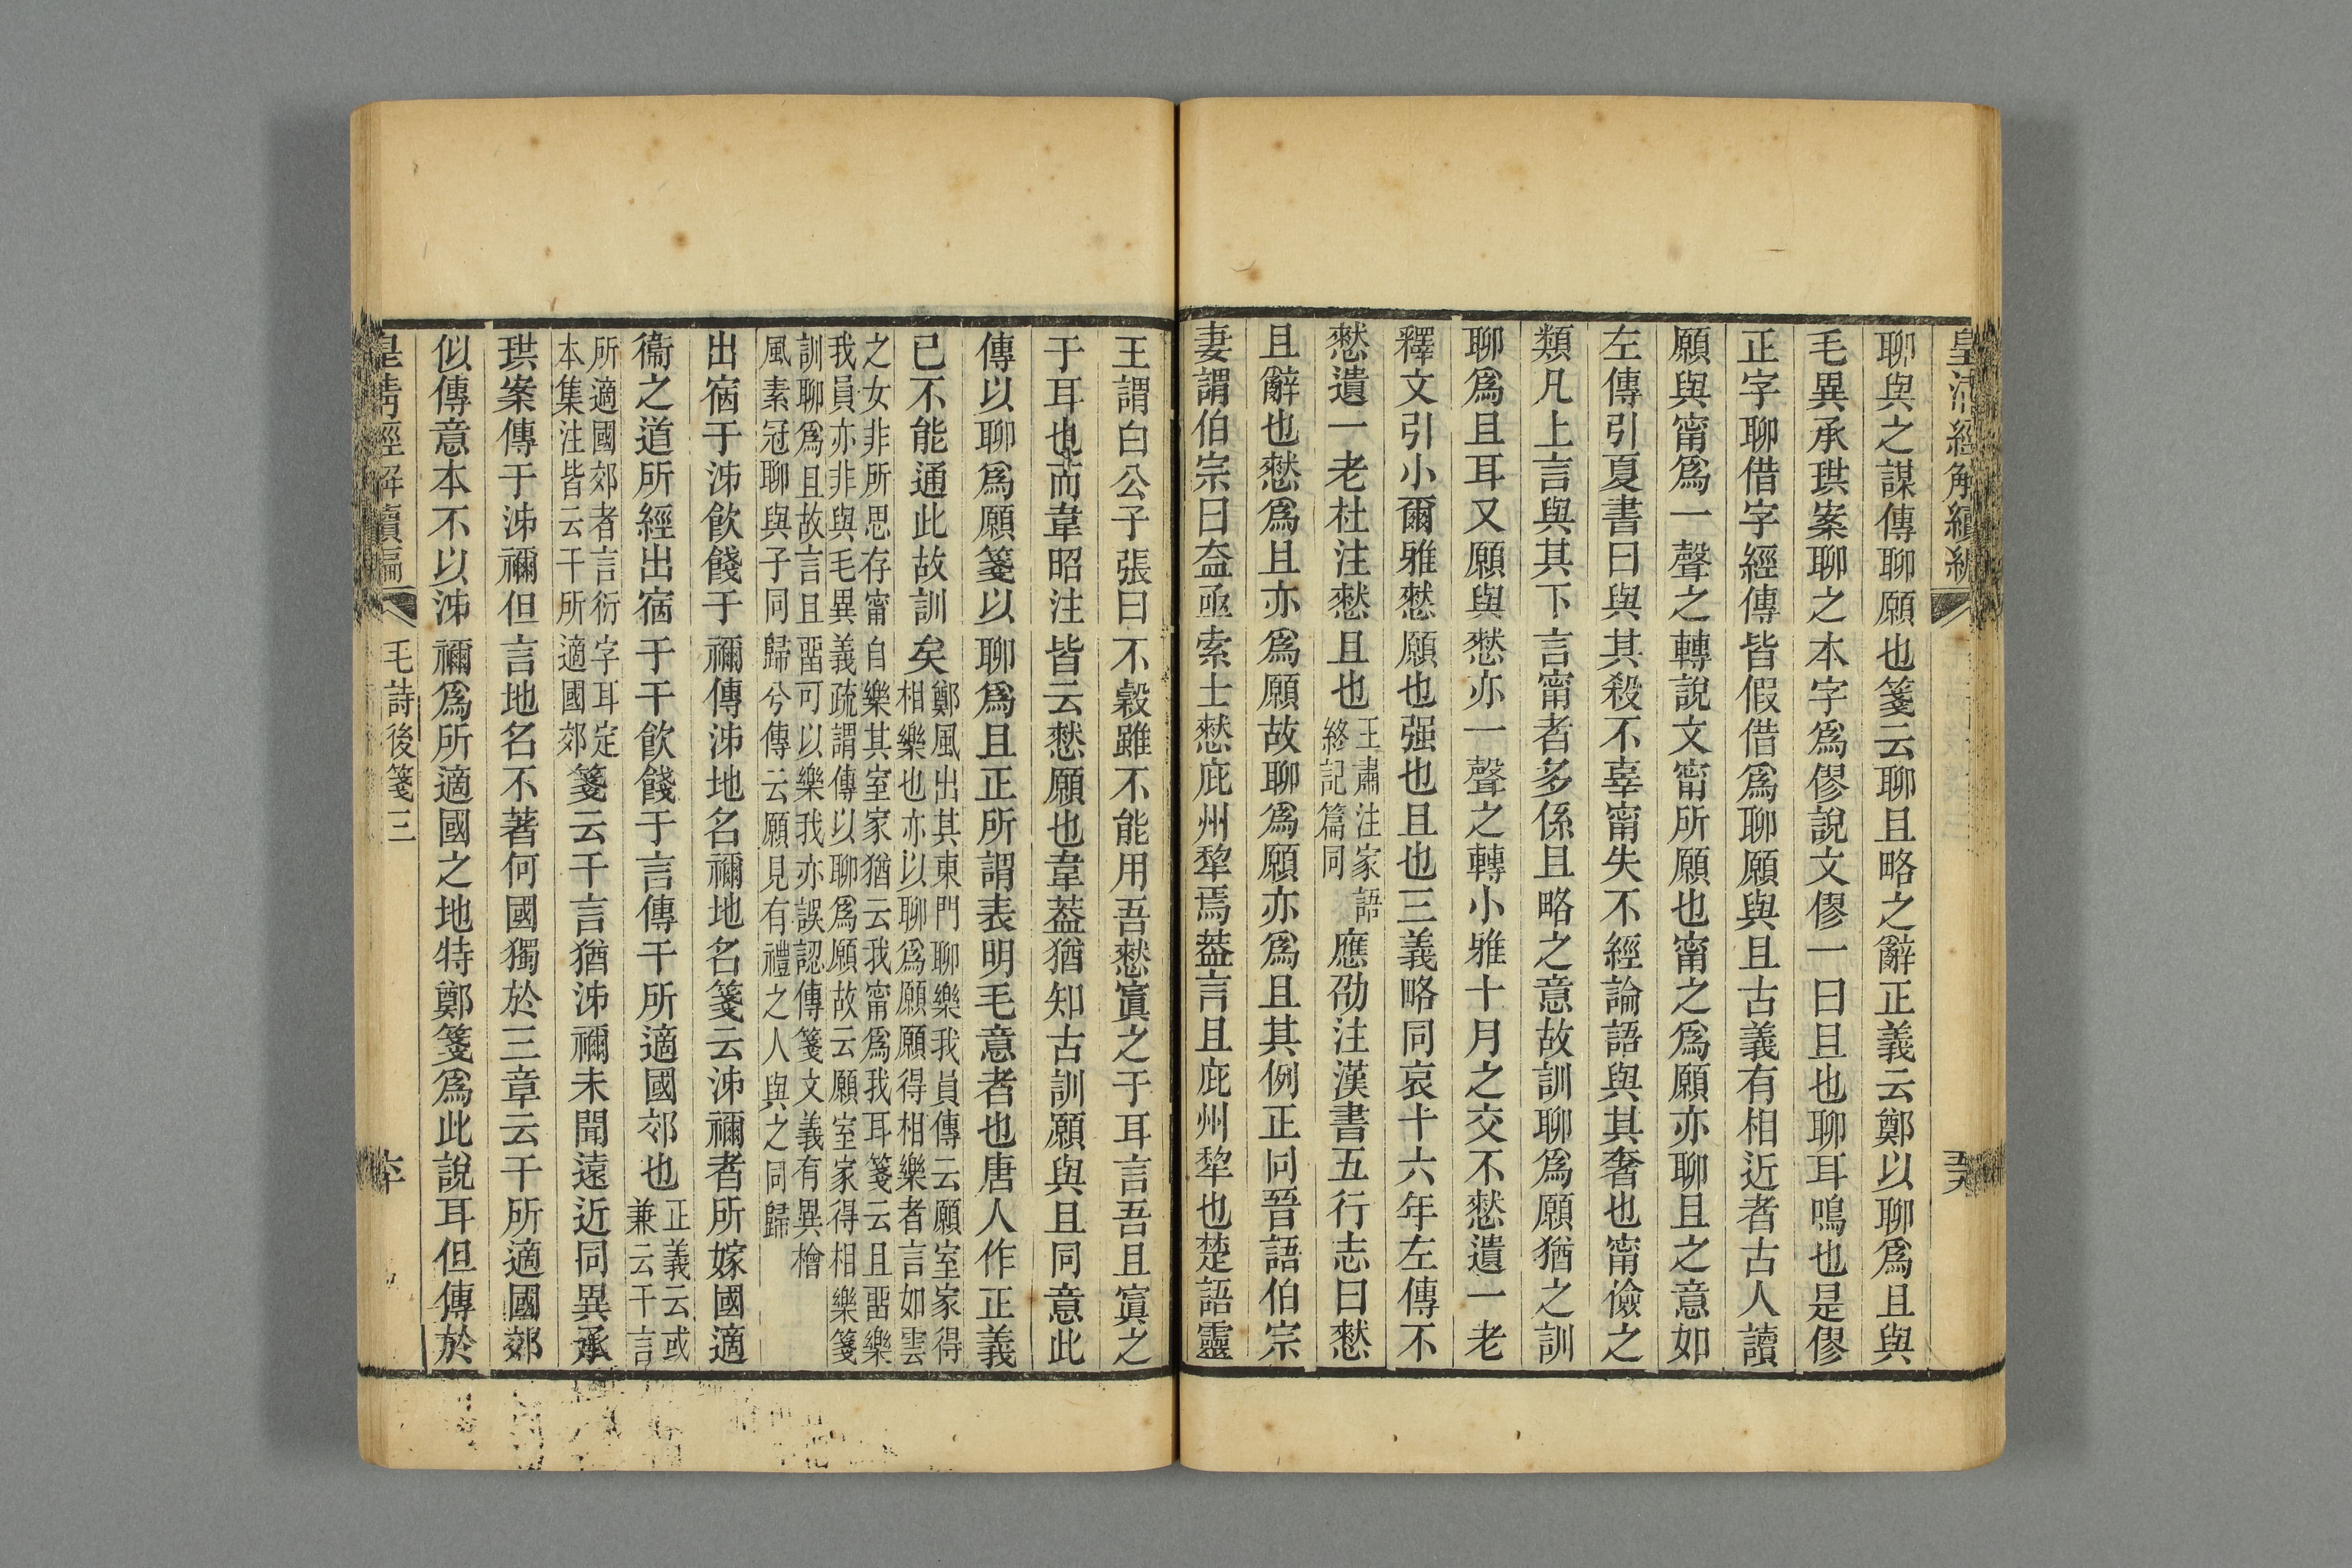 皇清經解續編
聊與之謀傳聊願也箋云聊且略之辭正義云鄭以聊爲且與
毛異承珙案聊之本字爲僇說文僇一曰且也聊耳鳴也是僇
正字聊借字經傳皆假借爲聊願與且古義有相近者古人讀
願與甯爲一聲之轉說文甯所願也甯之爲願亦聊且之意如
左傳引夏書曰與其殺不辜甯失不經論語與其奢也甯儉之
類凡上言與其下言甯者多係且略之意故訓聊爲願猶之訓
聊爲且耳又願與憖亦一聲之轉小雅十月之交不憖遺一老
釋文引小爾雅憖願也强也且也三義略同哀十六年左傳不
憖遺一老杜注憖且也王肅注家語終記篇同應劭注漢書五行志曰憖
且辭也憖爲且亦爲願故聊爲願亦爲且其例正同晉語伯宗
妻謂伯宗曰盍亟索士憖庇州犂焉葢言且庇州犂也楚語靈
王謂白公子張曰不穀雖不能用吾憖寘之于耳言吾且寘之
于耳也而韋昭注皆云憖願也韋葢猶知古訓願與且同意此
傳以聊爲願箋以聊爲且正所謂表明毛意者也唐人作正義
已不能通此故訓矣鄭風出其東門聊樂我員傳云願室家得
相樂也亦以聊爲願願得相樂者言如雲
之女非所思存甯自樂其室家猶云我甯爲我耳箋云且畱樂
我員亦非與毛異義疏謂傳以聊爲願故云願室家得相樂箋
訓聊爲且故言且畱可以樂我亦誤認傳箋文義有異檜
風素冠聊與子同歸兮傳云願見有禮之人與之同歸
出宿于泲飮餞于禰傳泲地名禰地名箋云泲禰者所嫁國適
衞之道所經出宿于干飮餞于言傳干所適國郊也正義云或
兼云干言
所適國郊者言衍字耳定
本集注皆云干所適國郊箋云干言猶泲禰未聞遠近同異承
珙案傳于泲禰但言地名不著何國獨於三章云干所適國郊
似傳意本不以泲禰爲所適國之地特鄭箋爲此說耳但傳於
皇清經解續編　毛詩後箋三